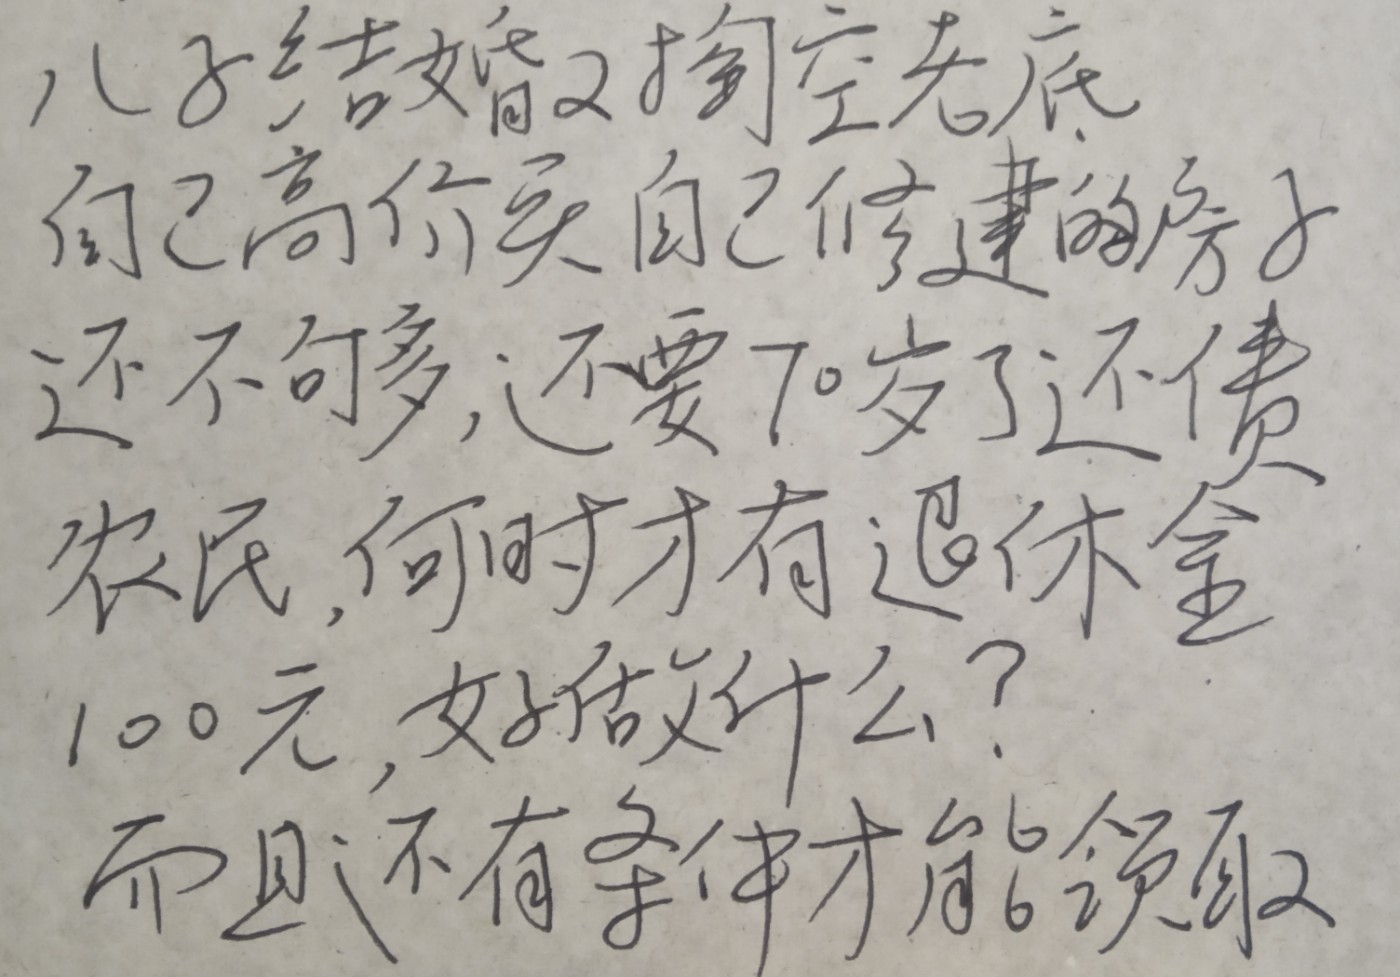 儿子结婚又掏空老底
自己高价买自己修建的房子
还不够多,还要70岁了还债
农民,何时才有退休金
100元,好做什么?
而且还有条件才能领取